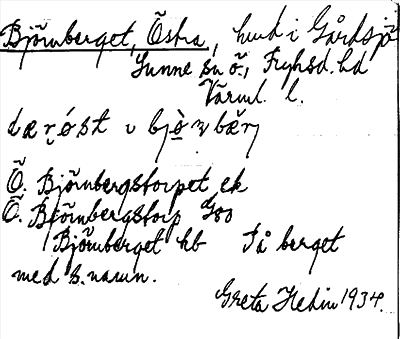 Björnberget, Östra, hmd i Gårdsjö
Sunne sn ö., Fryksd. hd
Värml. l.
Ö. Björnbergstorpet ek
Ö. Björnbergstorp G80
Björnberget hb På berget
med s. namn.
Greta Hedin 1934.